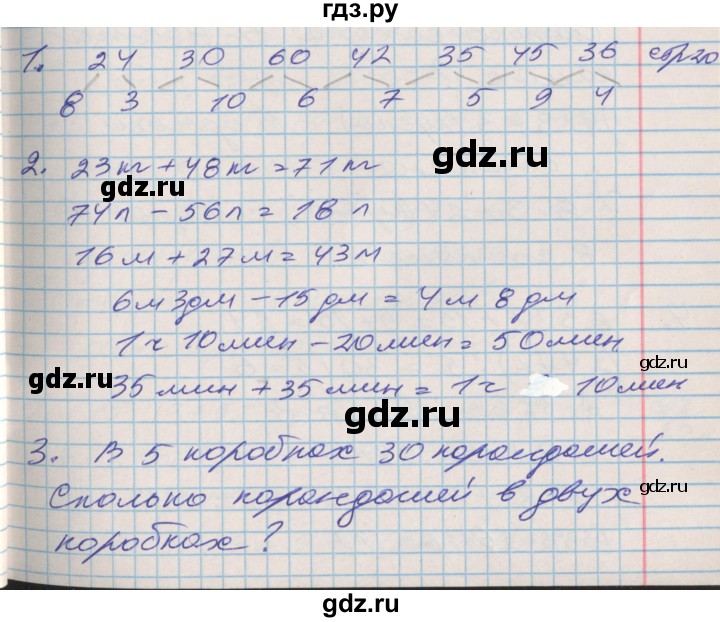 гдз.ру
1. 24 30 60 42 35 45 36 стр 20
8 3 10 6 7 5 9 4
2. 23 кг + 48 кг = 71 кг
gdz.ru
gdz.ru
74 л - 56 л = 18 л
16 м + 27 м = 43 м
6 м 3 дм - 15 дм = 4 м 8 дм
1 ч 10 мин - 20 мин = 50 мин
gdz.ru
gdz.ru
35 мин + 35 мин = 1 ч 10 мин
gdz.ru
3. В 5 коробках 30 корандошей.
Сколько корандошей в двух
gdz.ru
коробках?
gdz.ru
gdz.ru